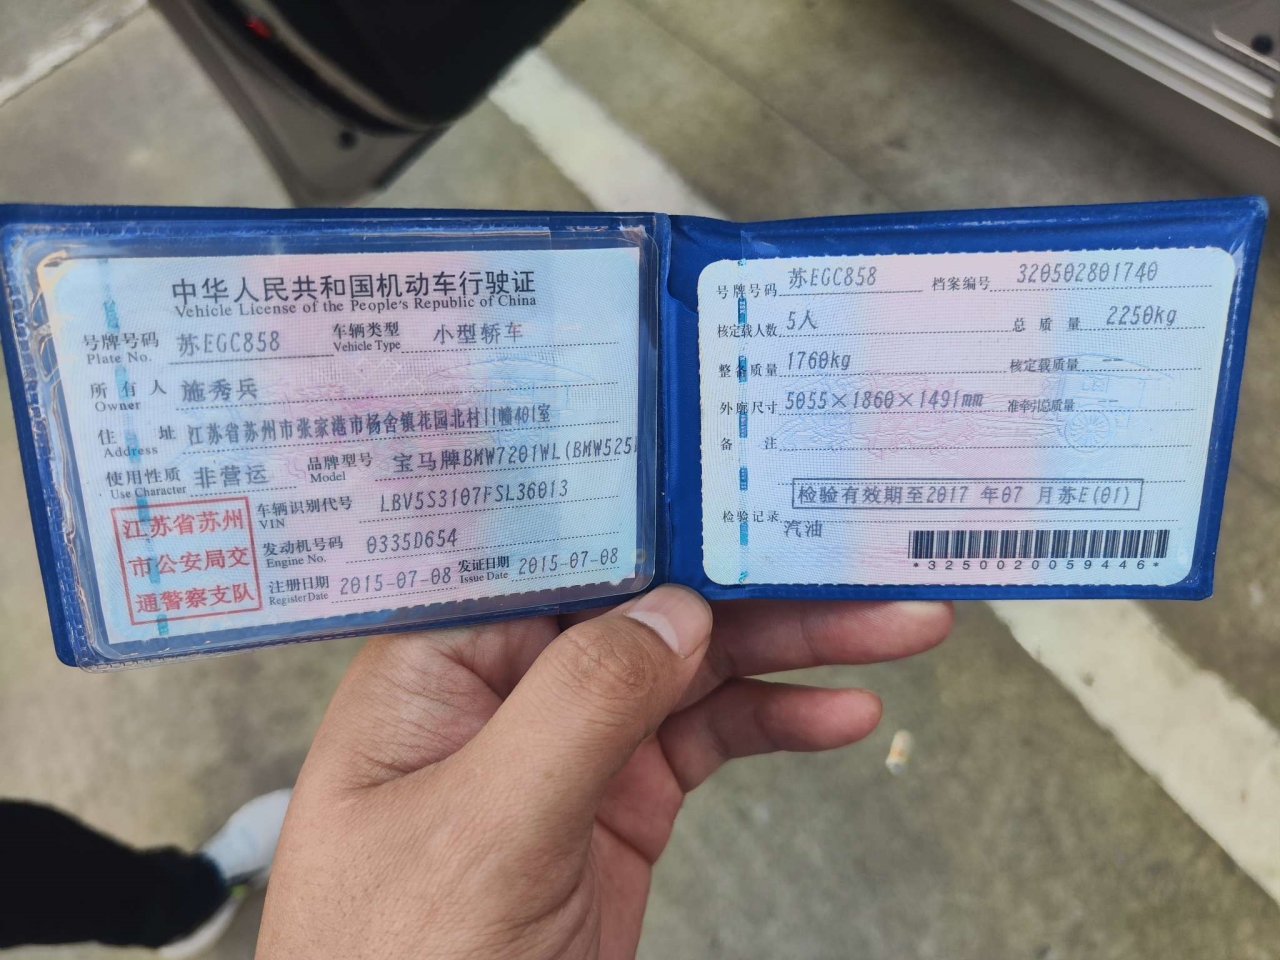 中华人民共和国机动车行驶证
Vehicle License of the People's Republic of China
号牌号码 苏EGC858 车辆类型 小型轿车
Plate No. Vehicle Type
所有人 施秀兵
Owner
住址 江苏省苏州市张家港市杨舍镇花园北村11幢401室
Address
使用性质 非营运 品牌型号 宝马牌BMW7201WL(BMW525
Use Character Model
江苏省苏州
市公安局交
通警察支队
车辆识别代号 LBV5S3107FSL36013
VIN
发动机号码 0335D654
Engine No.
注册日期 2015-07-08 发证日期 2015-07-08
Register Date Issue Date
号牌号码 苏EGC858 档案编号 320502801740
核定载人数 5人 总质量 2250kg
整备质量 1760kg 核定载质量 --
外廓尺寸 5055×1860×1491mm 准牵引总质量 --
备注
检验有效期至2017 年07 月苏E(01)
检验记录
汽油
*3250020059446*